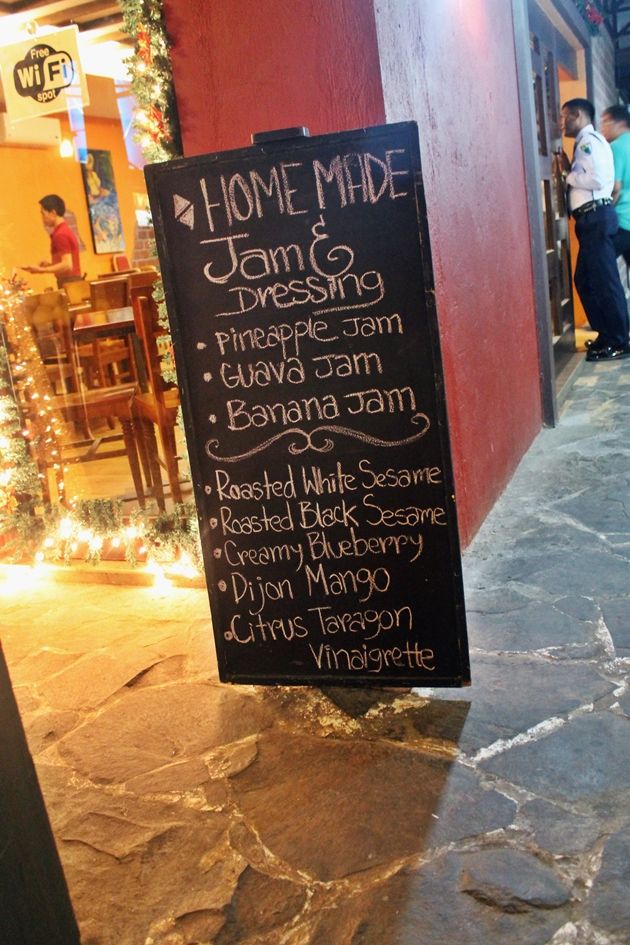 Free
WiFi
spot
HOME MADE
Jam &
Dressing
• Pineapple Jam
• Guava Jam
• Banana Jam
• Roasted White Sesame
• Roasted Black Sesame
• Creamy Blueberry
• Dijon Mango
• Citrus Taragon
Vinaigrette